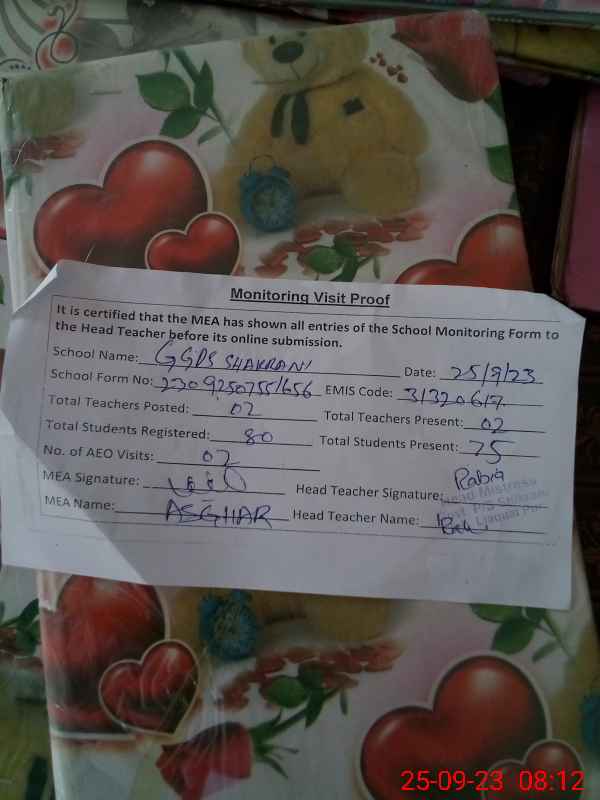 Monitoring Visit Proof
It is certified that the MEA has shown all entries of the School Monitoring Form to
the Head Teacher before its online submission.
School Name: GGPS SHAKRANI Date: 25/9/23
School Form No: 2309250755/656 EMIS Code: 31320617
Total Teachers Posted: 02 Total Teachers Present: 02
Total Students Registered: 80 Total Students Present: 75
No. of AEO Visits: 02
MEA Signature: Head Teacher Signature: Rabia
Head Mistress
Govt. P/S Shikrani
Liaquat Pur
MEA Name: ASGHAR Head Teacher Name:
25-09-23 08:12